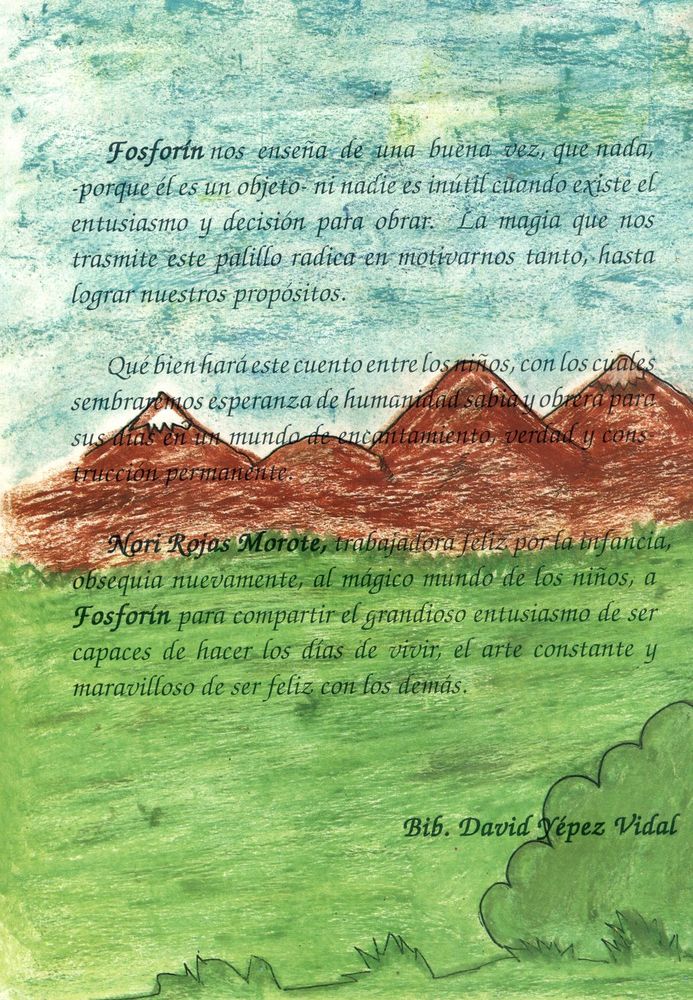 Fosforín nos enseña de una buena vez, que nada,
-porque él es un objeto- ni nadie es inútil cuando existe el
entusiasmo y decisión para obrar. La magia que nos
trasmite este palillo radica en motivarnos tanto, hasta
lograr nuestros propósitos.
Qué bien hará este cuento entre los niños, con los cuales
sembraremos esperanza de humanidad sabia y obrera para
sus días en un mundo de encantamiento, verdad y cons-
trucción permanente.
Nori Rojas Morote, trabajadora feliz por la infancia,
obsequia nuevamente, al mágico mundo de los niños, a
Fosforín para compartir el grandioso entusiasmo de ser
capaces de hacer los días de vivir, el arte constante y
maravilloso de ser feliz con los demás.
Bib. David Yépez Vidal